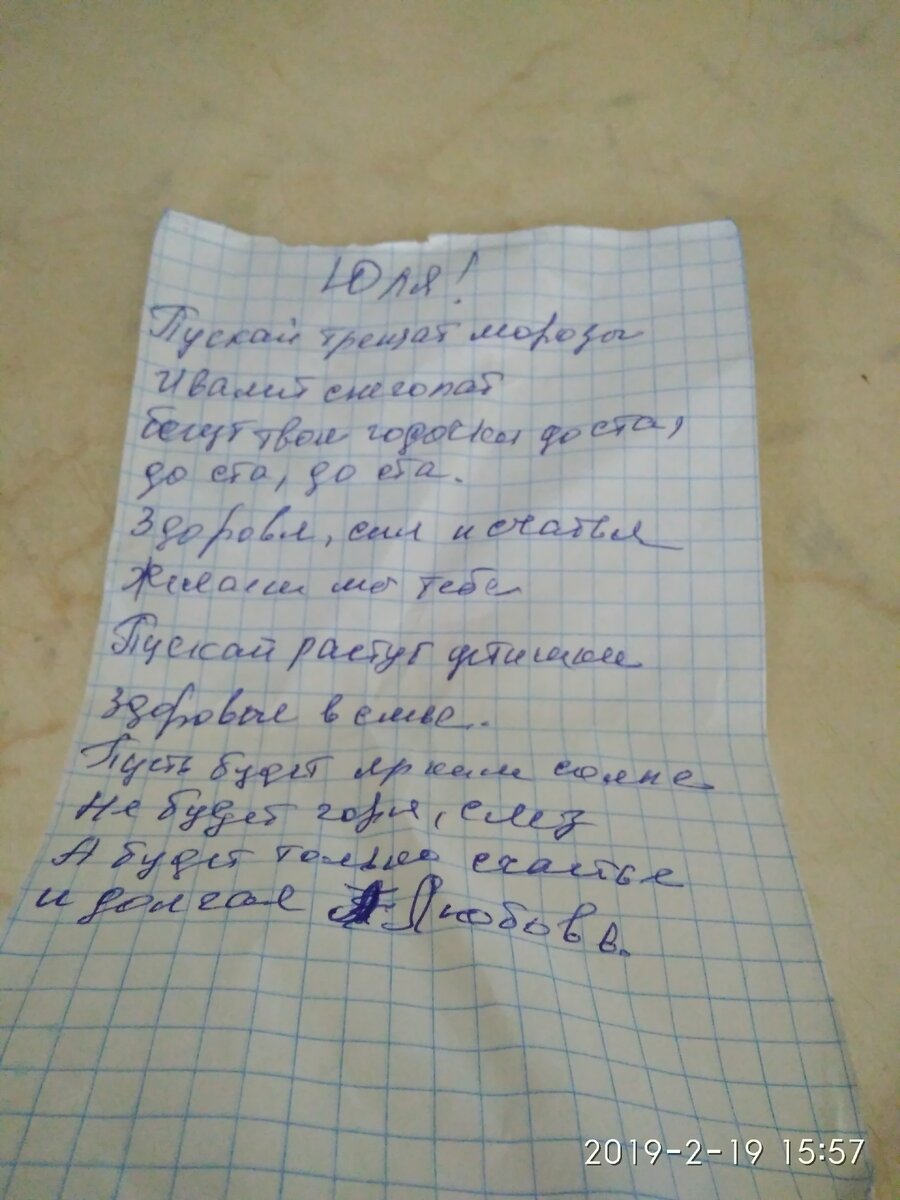 Юля!
Пускай трещат морозы
И валит снегопат
Бегут твои годочки до ста,
до ста, до ста.
Здоровя, сил и счатья
Желаем мы тебе
Пускай растут детишки
Здоровые в семье.
Пусть будет ярким солнце
Не будет горя, слез
А будет только счастье
и долгая Любовь.
2019-2-19 15:57